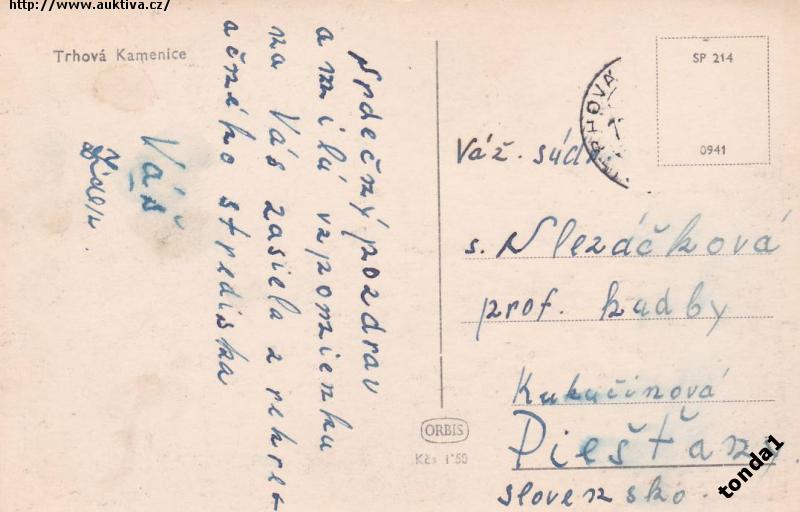 http://www.auktiva.cz/
Trhová Kamenice
Srdečný pozdrav
a milú vzpomienku
na Vás zasiela z rekre-
ačného strediska
Váš
SP 214
0941
TRHOVÁ
Váž. súdr
s. Slezáčková
prof. hudby
Kukučinová
Piešťany
slovensko.
ORBIS
Kčs 1'50
tonda1